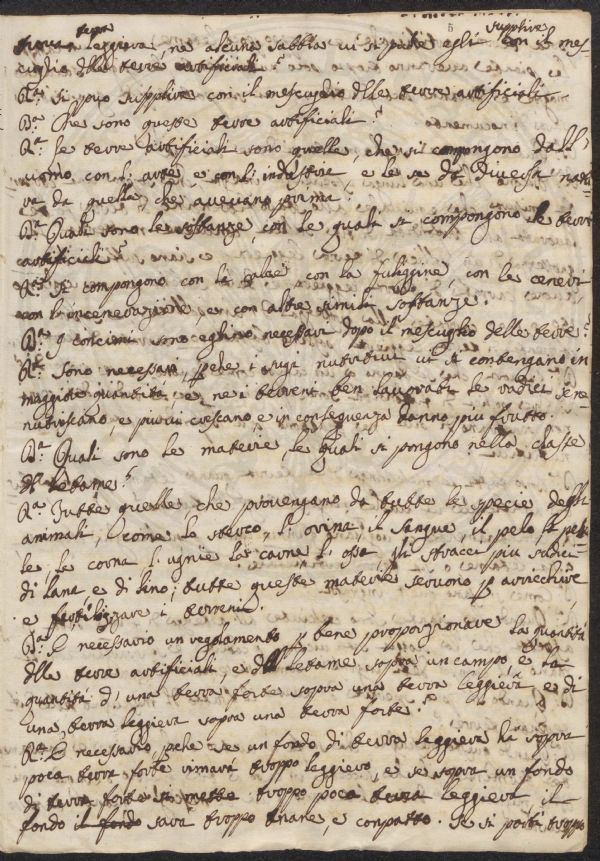 terra
supplire
trova leggiera, ne alcuna sabbia vi si pute egli con il mes-
cuglio delle terre artificiali?
R.a si può supplire con il mescuglio delle terre artificiali
D.a Che sono queste terre artificiali?
R.a le terre artificiali sono quelle, che si compongono dall'
uomo con l'arte e con l'industria, e le se dà diversa natu
ra da quella, che avevano prima.
D.a Quali sono le sostanze, con le quali si compongono le terre
artificiali?
R.a si compongono con la calce con la fuliggine, con le ceneri,
con l'incenerazione e con altre simili sostanze.
D.a I concimi sono eglino necessari dopo il mescuglio delle terre?
R.a sono necessari, perche i sugi nutritivi vi si contengano in
maggiore quantità e, ne i terreni ben lavorati le radici se ne
nutriscano, e più vi crescano, e in conseguenza danno piu frutto.
D.a Quali sono le materie le quali si pongono nella classe
di letame?
R.a Tutte quelle che provengano da tutte le specie degli
animali, come lo sterco, l'orina, il sangue, il pelo la pel
le le corna l'ugnie la carne l'ossa, gli stracci più sudici
di lana e di lino; tutte queste materie servono p arrechire,
e fertilizzare i terreni.
D.a È necessario un regolamento p bene proporzionare la quantità
delle terre artificiali, e del letame sopra un campo, e la
quantità d'una terra forte sopra una terra leggiera, e di
una terra leggiera sopra una terra forte?
R.a È necessario, pche se un fondo di terra leggiera ha sopra
poca terra forte rimarà troppo leggiero, e se sopra un fondo
di terra forte si mette troppo poca terra leggiera il
fondo il fondo sara troppo tenace, e conpatto. Se si porta troppo